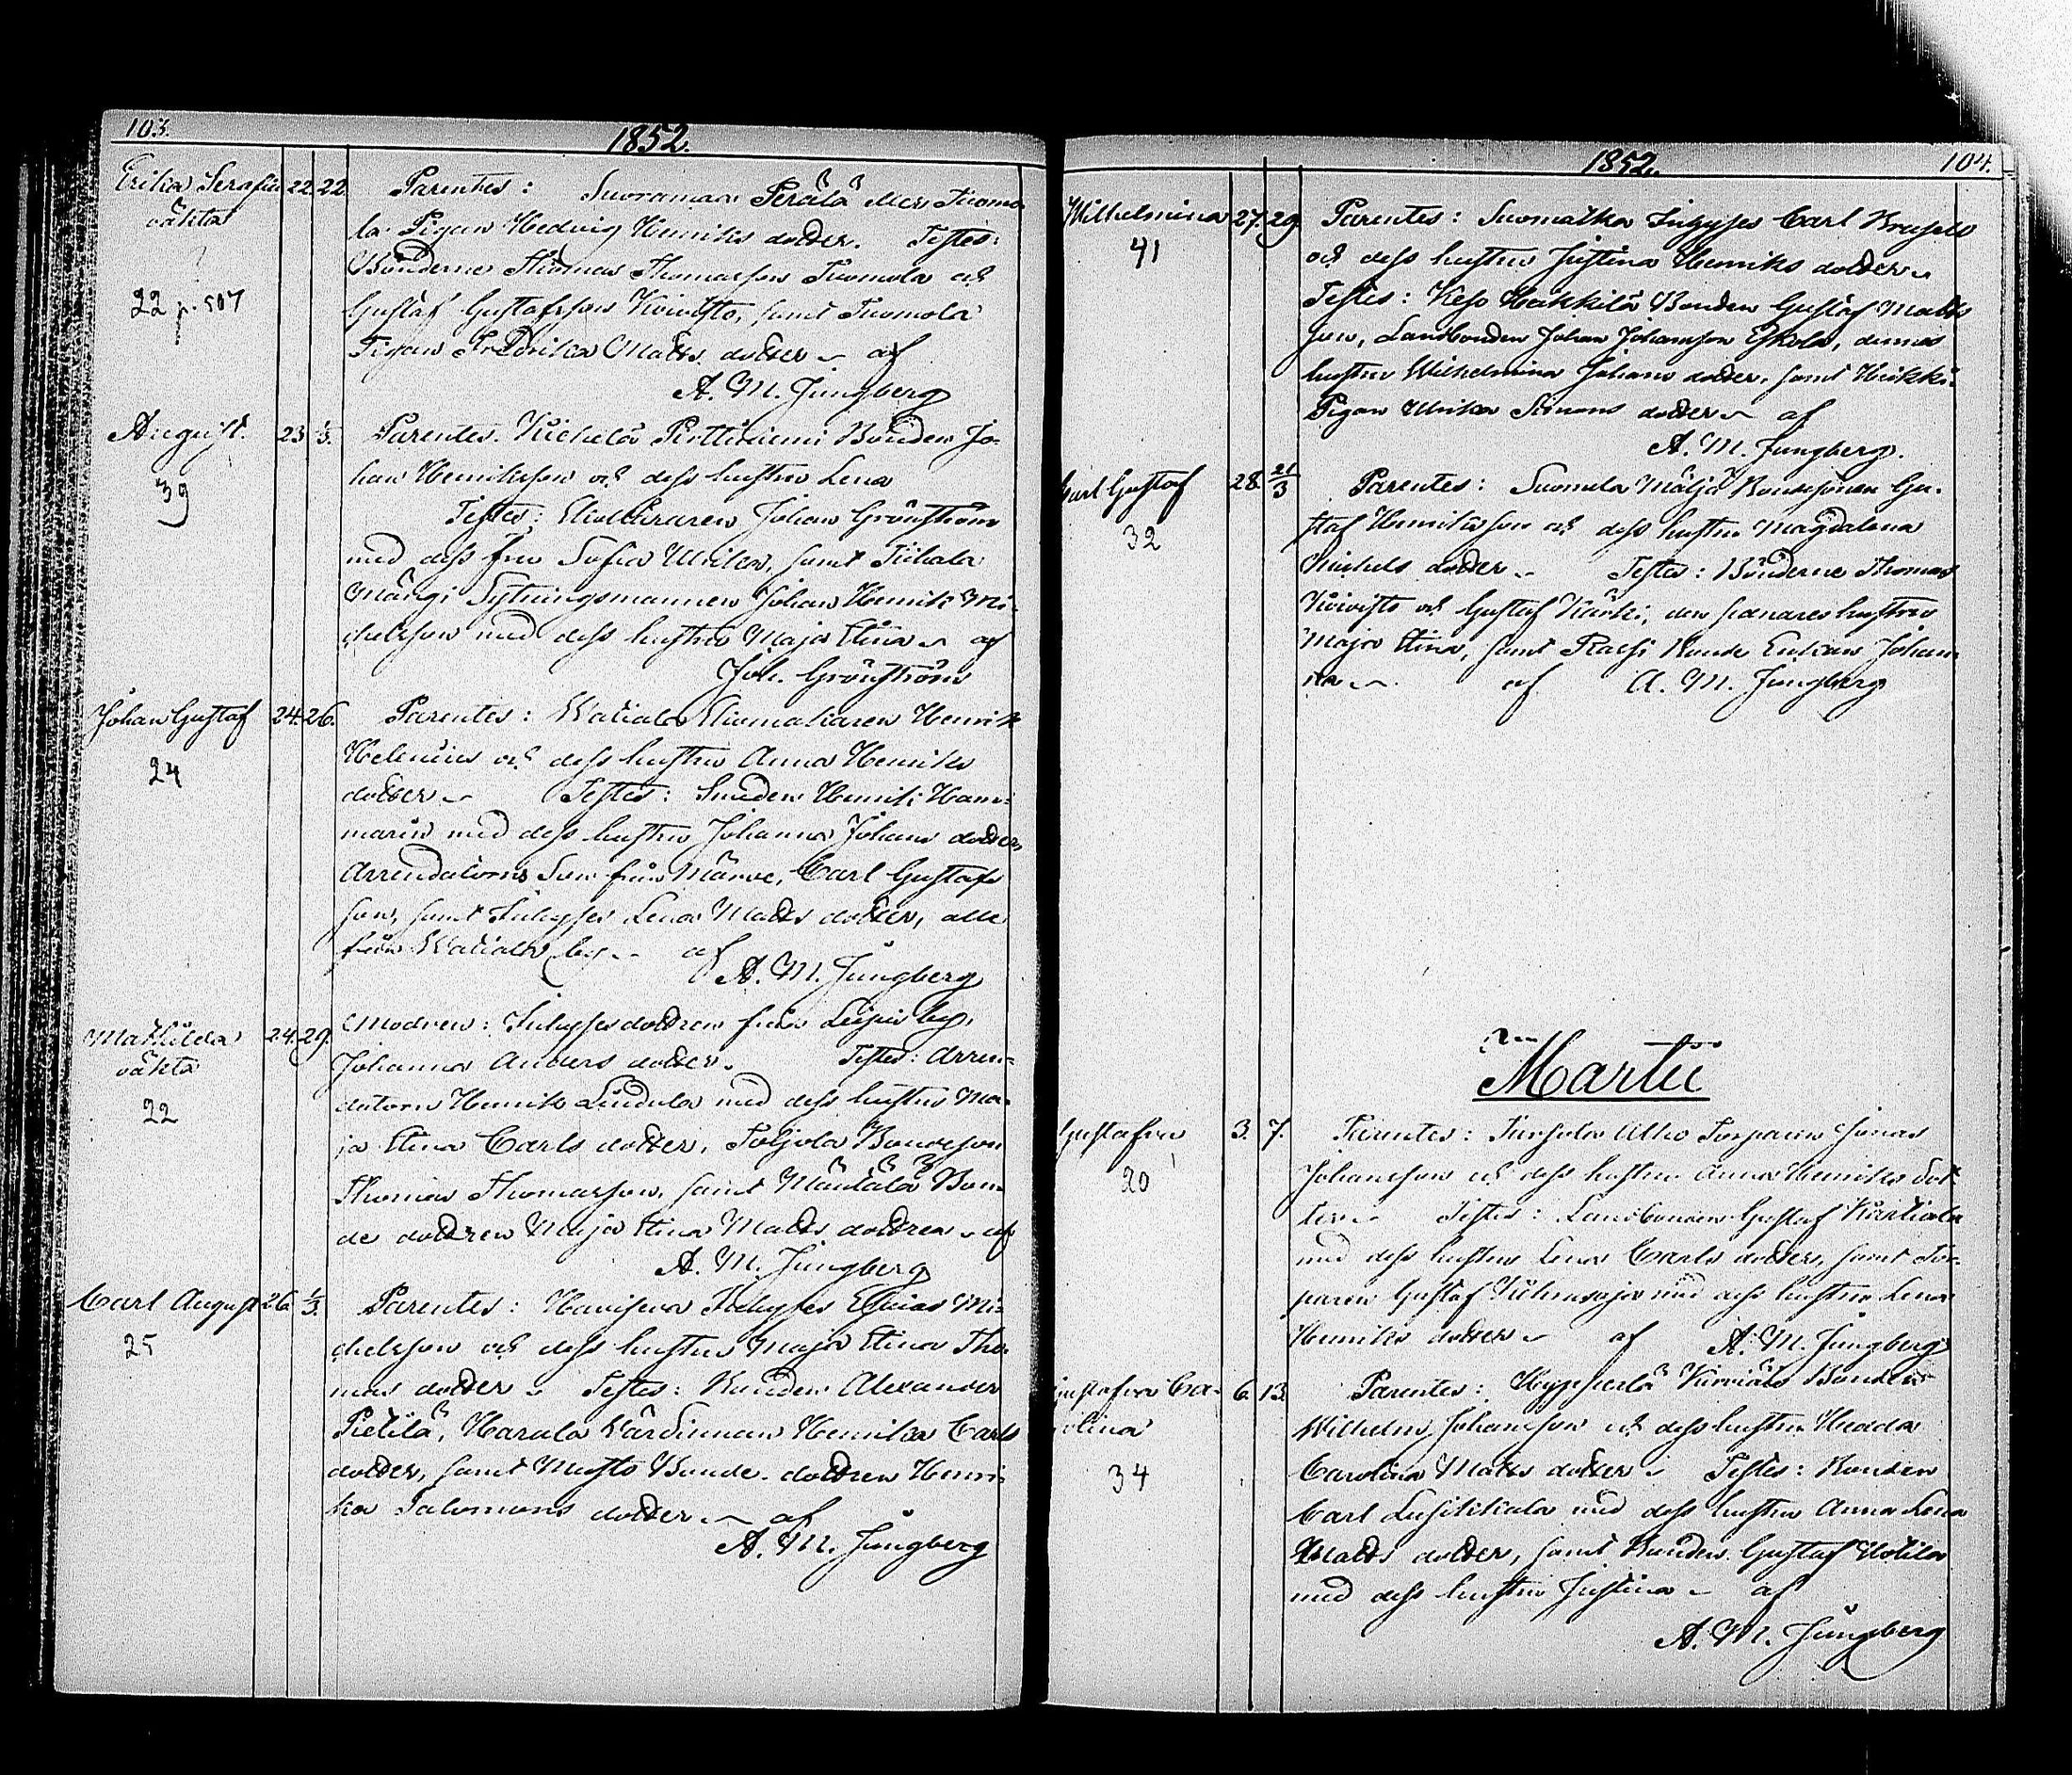 103.
1852.
Erika Serafia
oäkta
22 p. 507
22. 22
Parentes: Suoramaa Perälä Tuomo
la Pigan Hedvig Henriks dotter. Testes:
Bönderne Thomas Thomasson Tuomola och
Gustaf Gustafsson Koivisto, samt Tuomola
Pigan Fredrika Matts dotter af
A. M. Jungberg
August.
39
23 1/3.
Parentes. Perttuniemi Bonden Jo-
han Henriksson och dess hustru Lena
Testes: Johan Grönström
med dess fru Sofia Ulrika, samt
Sytningsmannen Johan Henrik Mi-
chelsson med dess hustru Maja Stina af
Joh. Grönström
Johan Gustaf
24
24. 26.
Parentes: Watiala Henrik
Helenius och dess hustru Anna Henriks
dotter Testes: Smeden Henrik Ham-
marin med dess hustru Johanna Johans dotter,
Arrendatorns Son från Carl Gustafs
son, samt Inhyses Lena Matts dotter, alla
från Watiala by af
A. M. Jungberg
Mathilda
oäkta
22
24. 29.
Modren: Inhysesdottren från by,
Johanna Anders dotter. Testes: Arren-
datorn Henrik Lindula med dess hustru Ma-
ja Stina Carls dotter, Pohjola Bondeson
Thomas Thomasson, samt Mäntälä Bon-
de dottren Maja Stina Matts dottren af
A. M. Jungberg
Carl August
25
26. 1/3.
Parentes: Haviseva Inhyses Esaias Mi-
chelsson och dess hustru Maja Stina Tho-
mas dotter Testes: Bonden Alexander
Pietilä, Harala Värdinnan Henrika Carls
dotter, samt Bonde dottren Henri-
ka Salomons dotter af
A. M. Jungberg
1852.
104.
Wilhelmina
41
27. 29.
Parentes: Suomatka Inhyses Carl
och dess hustru Justina Henriks dotter
Testes: Keso Heikkilä Bonden Gustaf Matts
son, Landbonden Johan Johansson Eskola, dennes
hustru Wilhelmina Johans dotter, samt
Pigan Ulrika Simons dotter af
A. M. Jungberg.
Carl Gustaf
32
28. 21/3
Parentes: Suomela Mäljä Bondesonen Gu-
staf Henriksson och dess hustru Magdalena
Michels dotter Testes: Bönderne Thomas
Koivisto och Gustaf Kurki, den senares hustru
Maja Stina, samt Bonde Enkan Johan-
na af A. M. Jungberg
Martii
Gustafva
20
3. 7.
Parentes: Torparen Jonas
Johansson och dess hustru Anna Henriks dot-
ter Testes: Landbonden Gustaf
med dess hustru Lena Carls dotter, samt Tor-
paren Gustaf med dess hustru Lena
Henriks dotter af A. M. Jungberg
Gustafva Ca-
rolina
34
6. 13.
Parentes: Bonden
Wilhelm Johansson och dess hustru Hedda
Carolina Matts dotter Testes: Bonden
Carl Liusikkala med dess hustru Anna Lena
Matts dotter, samt Bonden Gustaf
med dess hustru Justina af
A. M. Jungberg